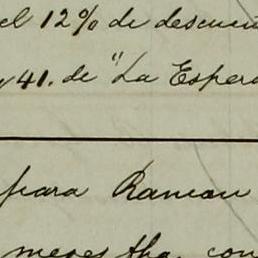 el 12% de descuen
y 41. de "La Espera
para Rancau
meses fha, con